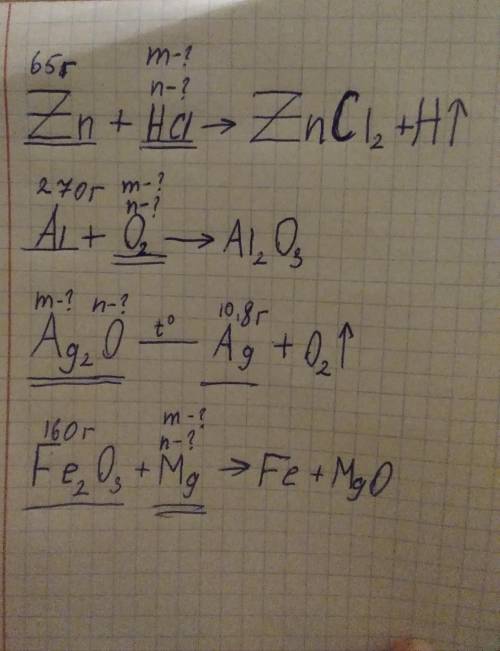 65г m-?
n-?
Zn + HCl → ZnCl₂ + H↑
270г m-?
n-?
Al + O₂ → Al₂O₃
m-? n-? t° 10,8г
Ag₂O — Ag + O₂↑
160г m-?
n-?
Fe₂O₃ + Mg → Fe + MgO